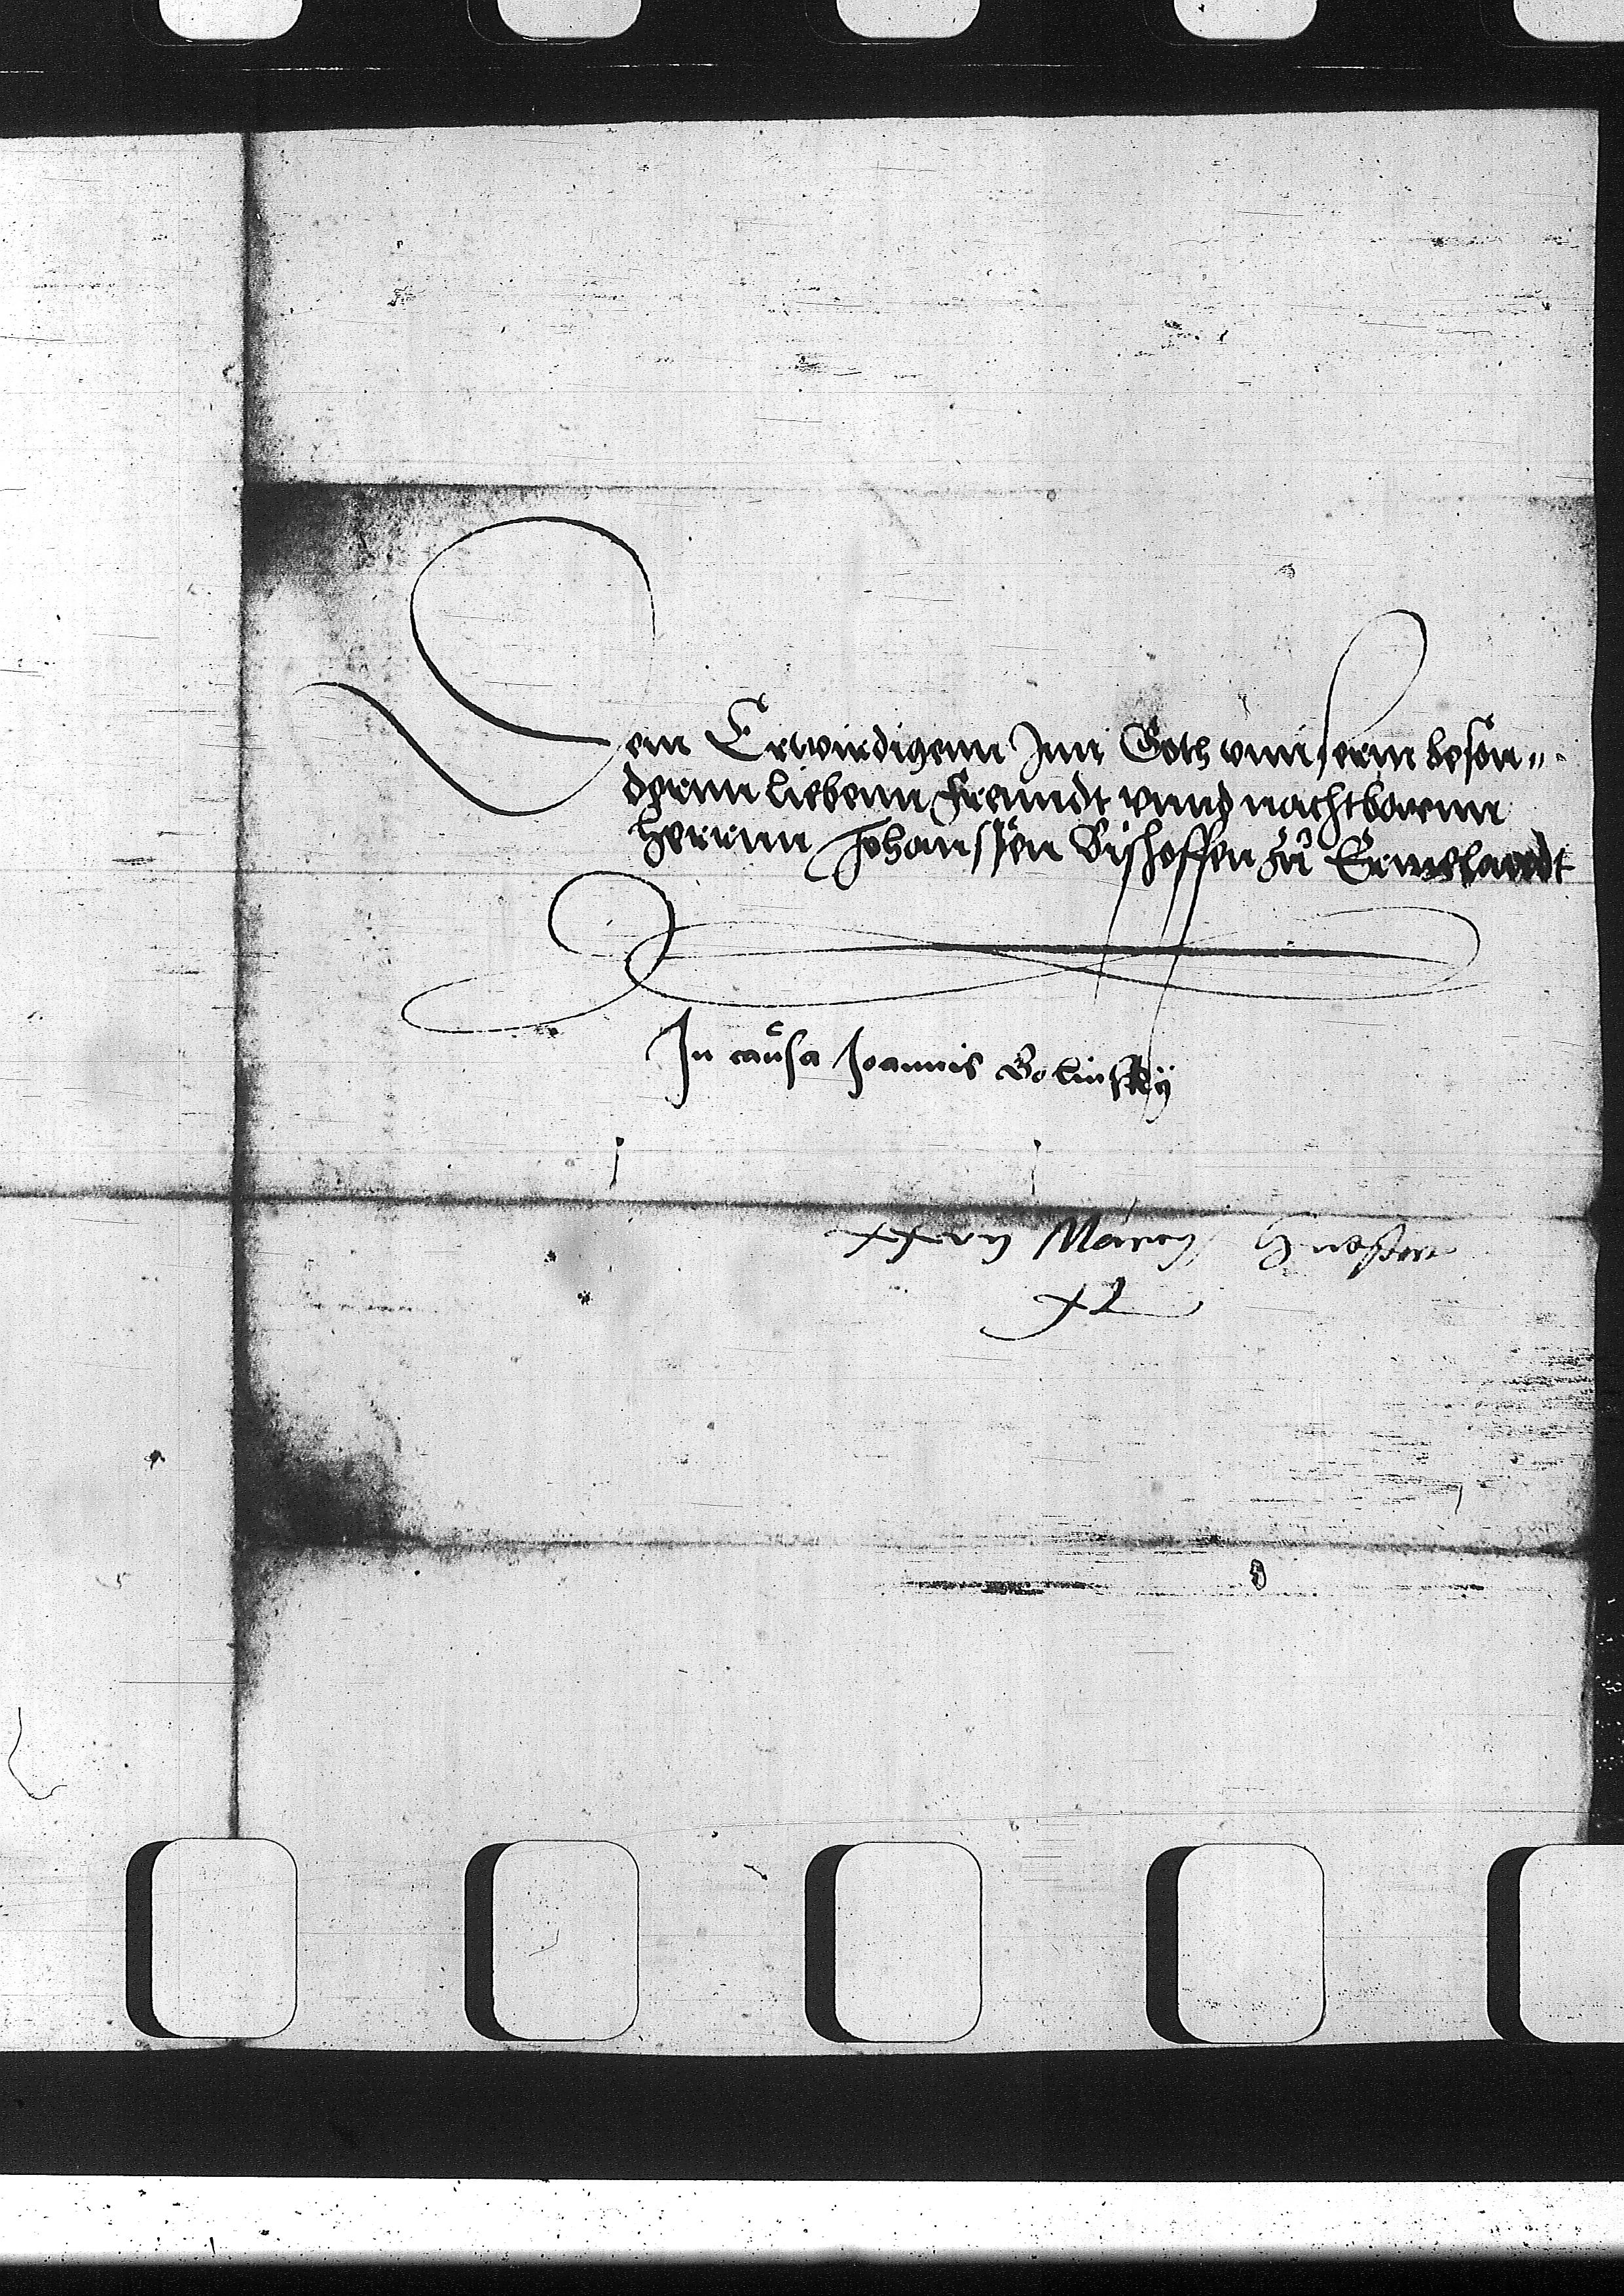 Dem Erwirdigenn Inn Goth vnnserm beson=
dernn liebenn Freundt vnnd nachtbarnn
Herrnn Johanssen Bischoffen zu Ermelandt
In causa Joannis Bolinsky
xxvij Marcij
xl